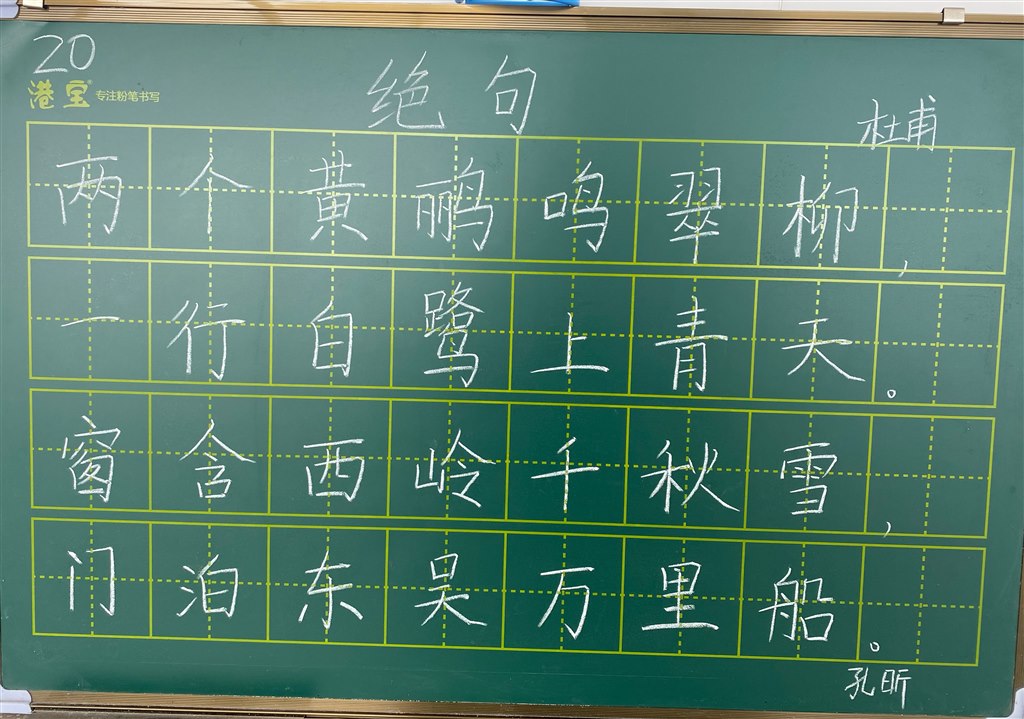 20
港宝®专注粉笔书写
绝句
杜甫
两个黄鹂鸣翠柳,
一行白鹭上青天。
窗含西岭千秋雪,
门泊东吴万里船。
孔昕